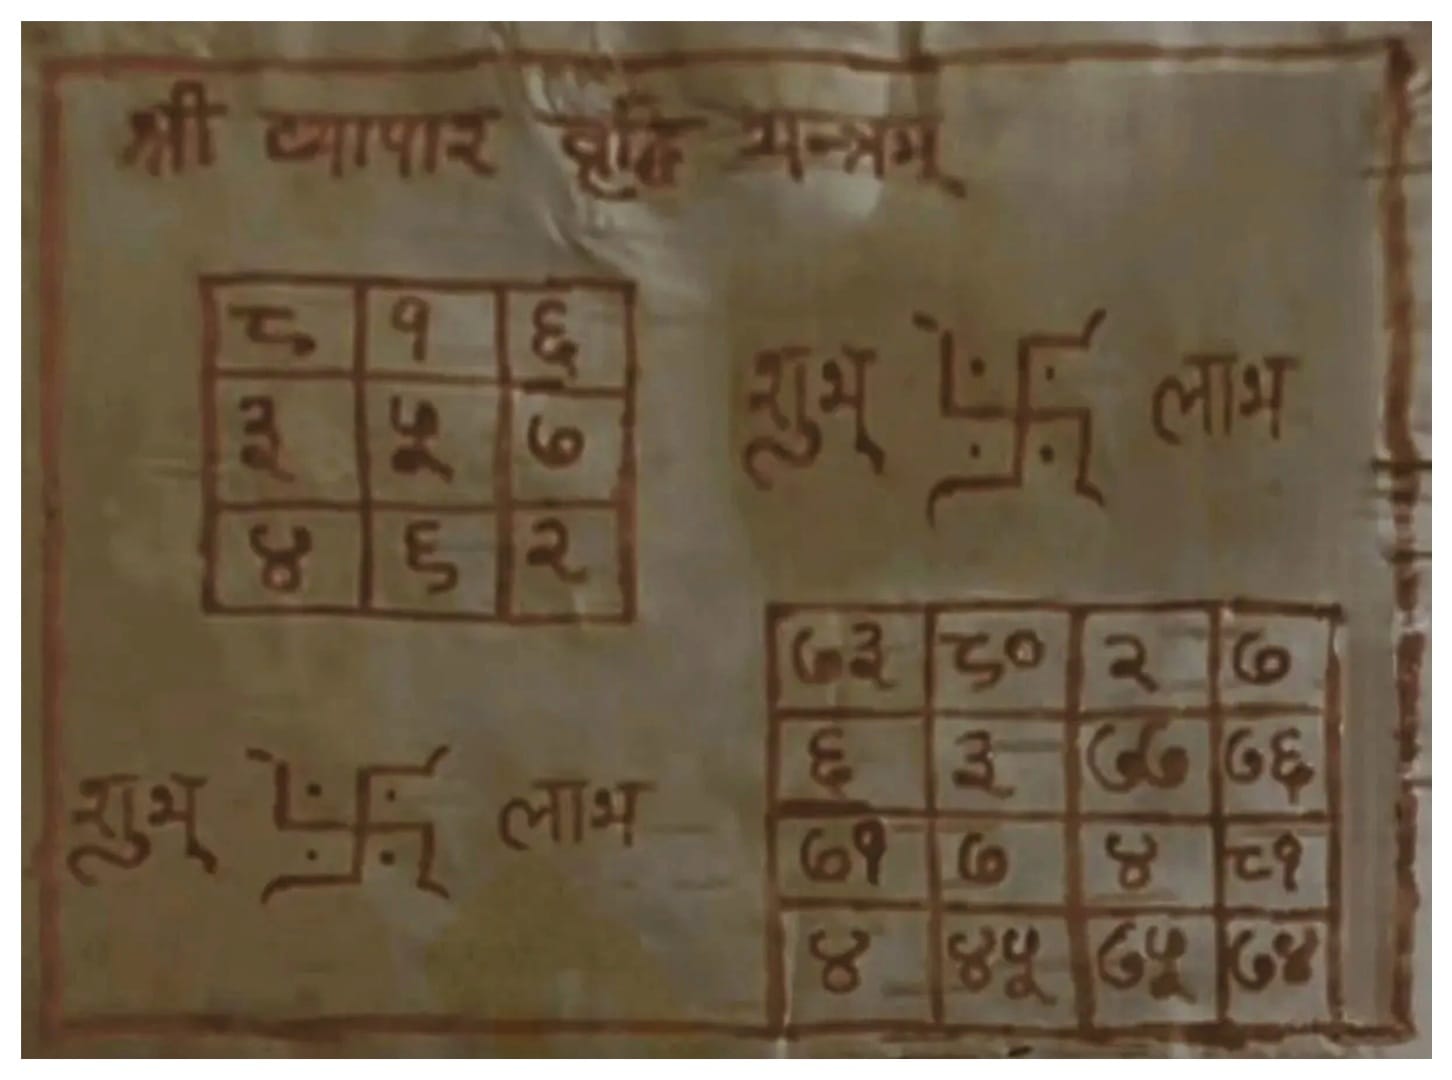 श्री व्यापार वृद्धि यन्त्रम्
८ १ ६
३ ५ ७
४ ९ २
शुभ् 卐 लाभ
शुभ् 卐 लाभ
७३ ८० २ ७
६ ३ ७७ ७६
७१ ७ ४ ८१
४ ४५ ७५ ७४